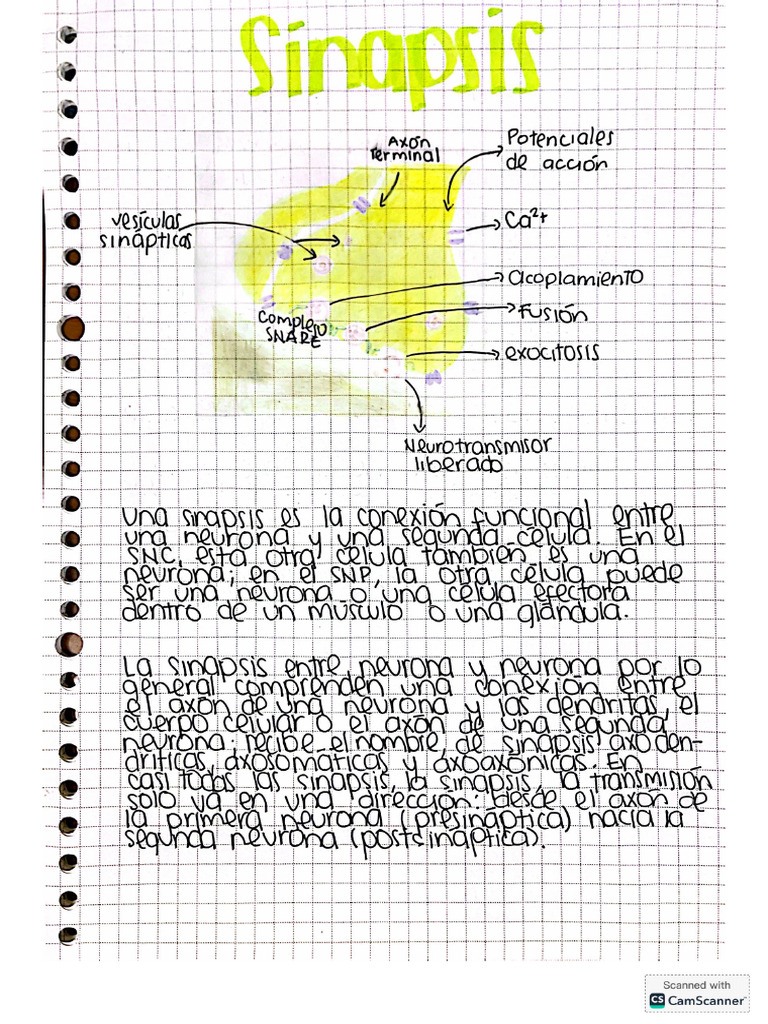 Sinapsis
Axón
terminal
Potenciales
de acción
vesículas
sinápticas
Ca²⁺
acoplamiento
Complejo
SNARE
Fusión
exocitosis
Neurotransmisor
liberado
Una sinapsis es la conexión funcional entre
una neurona y una segunda célula. En el
SNC, esta otra célula también es una
neurona; en el SNP, la otra célula puede
ser una neurona o una célula efectora
dentro de un músculo o una glándula.
La sinapsis entre neurona y neurona por lo
general comprenden una conexión entre
el axón de una neurona y las dendritas, el
cuerpo celular o el axón de una segunda
neurona; recibe el nombre de sinapsis axoden-
dríticas, axosomáticas y axoaxónicas. En
casi todas las sinapsis, la sinapsis, la transmisión
solo va en una dirección: desde el axón de
la primera neurona (presináptica) hacia la
segunda neurona (postsináptica).
Scanned with
CS CamScanner